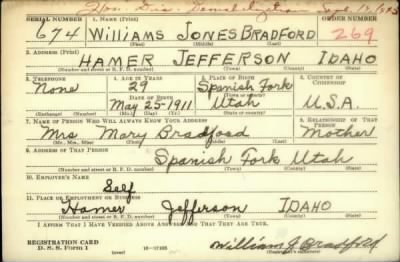 Hon. Dis. Demobilization Sept. 12, 1945
SERIAL NUMBER 1. NAME (Print) ORDER NUMBER
674 WILLIAMS JONES BRADFORD 269
(First) (Middle) (Last)
2. ADDRESS (Print)
HAMER JEFFERSON IDAHO
(Number and street or R. F. D. number) (Town) (County) (State)
3. TELEPHONE 4. AGE IN YEARS 5. PLACE OF BIRTH 6. COUNTRY OF CITIZENSHIP
None 29 Spanish Fork
DATE OF BIRTH (Town or county)
May 25-1911 Utah U.S.A.
(Exchange) (Number) (Mo.) (Day) (Yr.) (State or country)
7. NAME OF PERSON WHO WILL ALWAYS KNOW YOUR ADDRESS 8. RELATIONSHIP OF THAT PERSON
Mrs Mary Bradford Mother
(Mr., Mrs., Miss) (First) (Middle) (Last)
9. ADDRESS OF THAT PERSON
Spanish Fork Utah
(Number and street or R. F. D. number) (Town) (County) (State)
10. EMPLOYER'S NAME
Self
11. PLACE OF EMPLOYMENT OR BUSINESS
Hamer Jefferson IDAHO
(Number and street or R. F. D. number) (Town) (County) (State)
I AFFIRM THAT I HAVE VERIFIED ABOVE ANSWERS AND THAT THEY ARE TRUE.
REGISTRATION CARD
D. S. S. Form 1 (over) 16-17105 William J Bradford
(Registrant's signature)